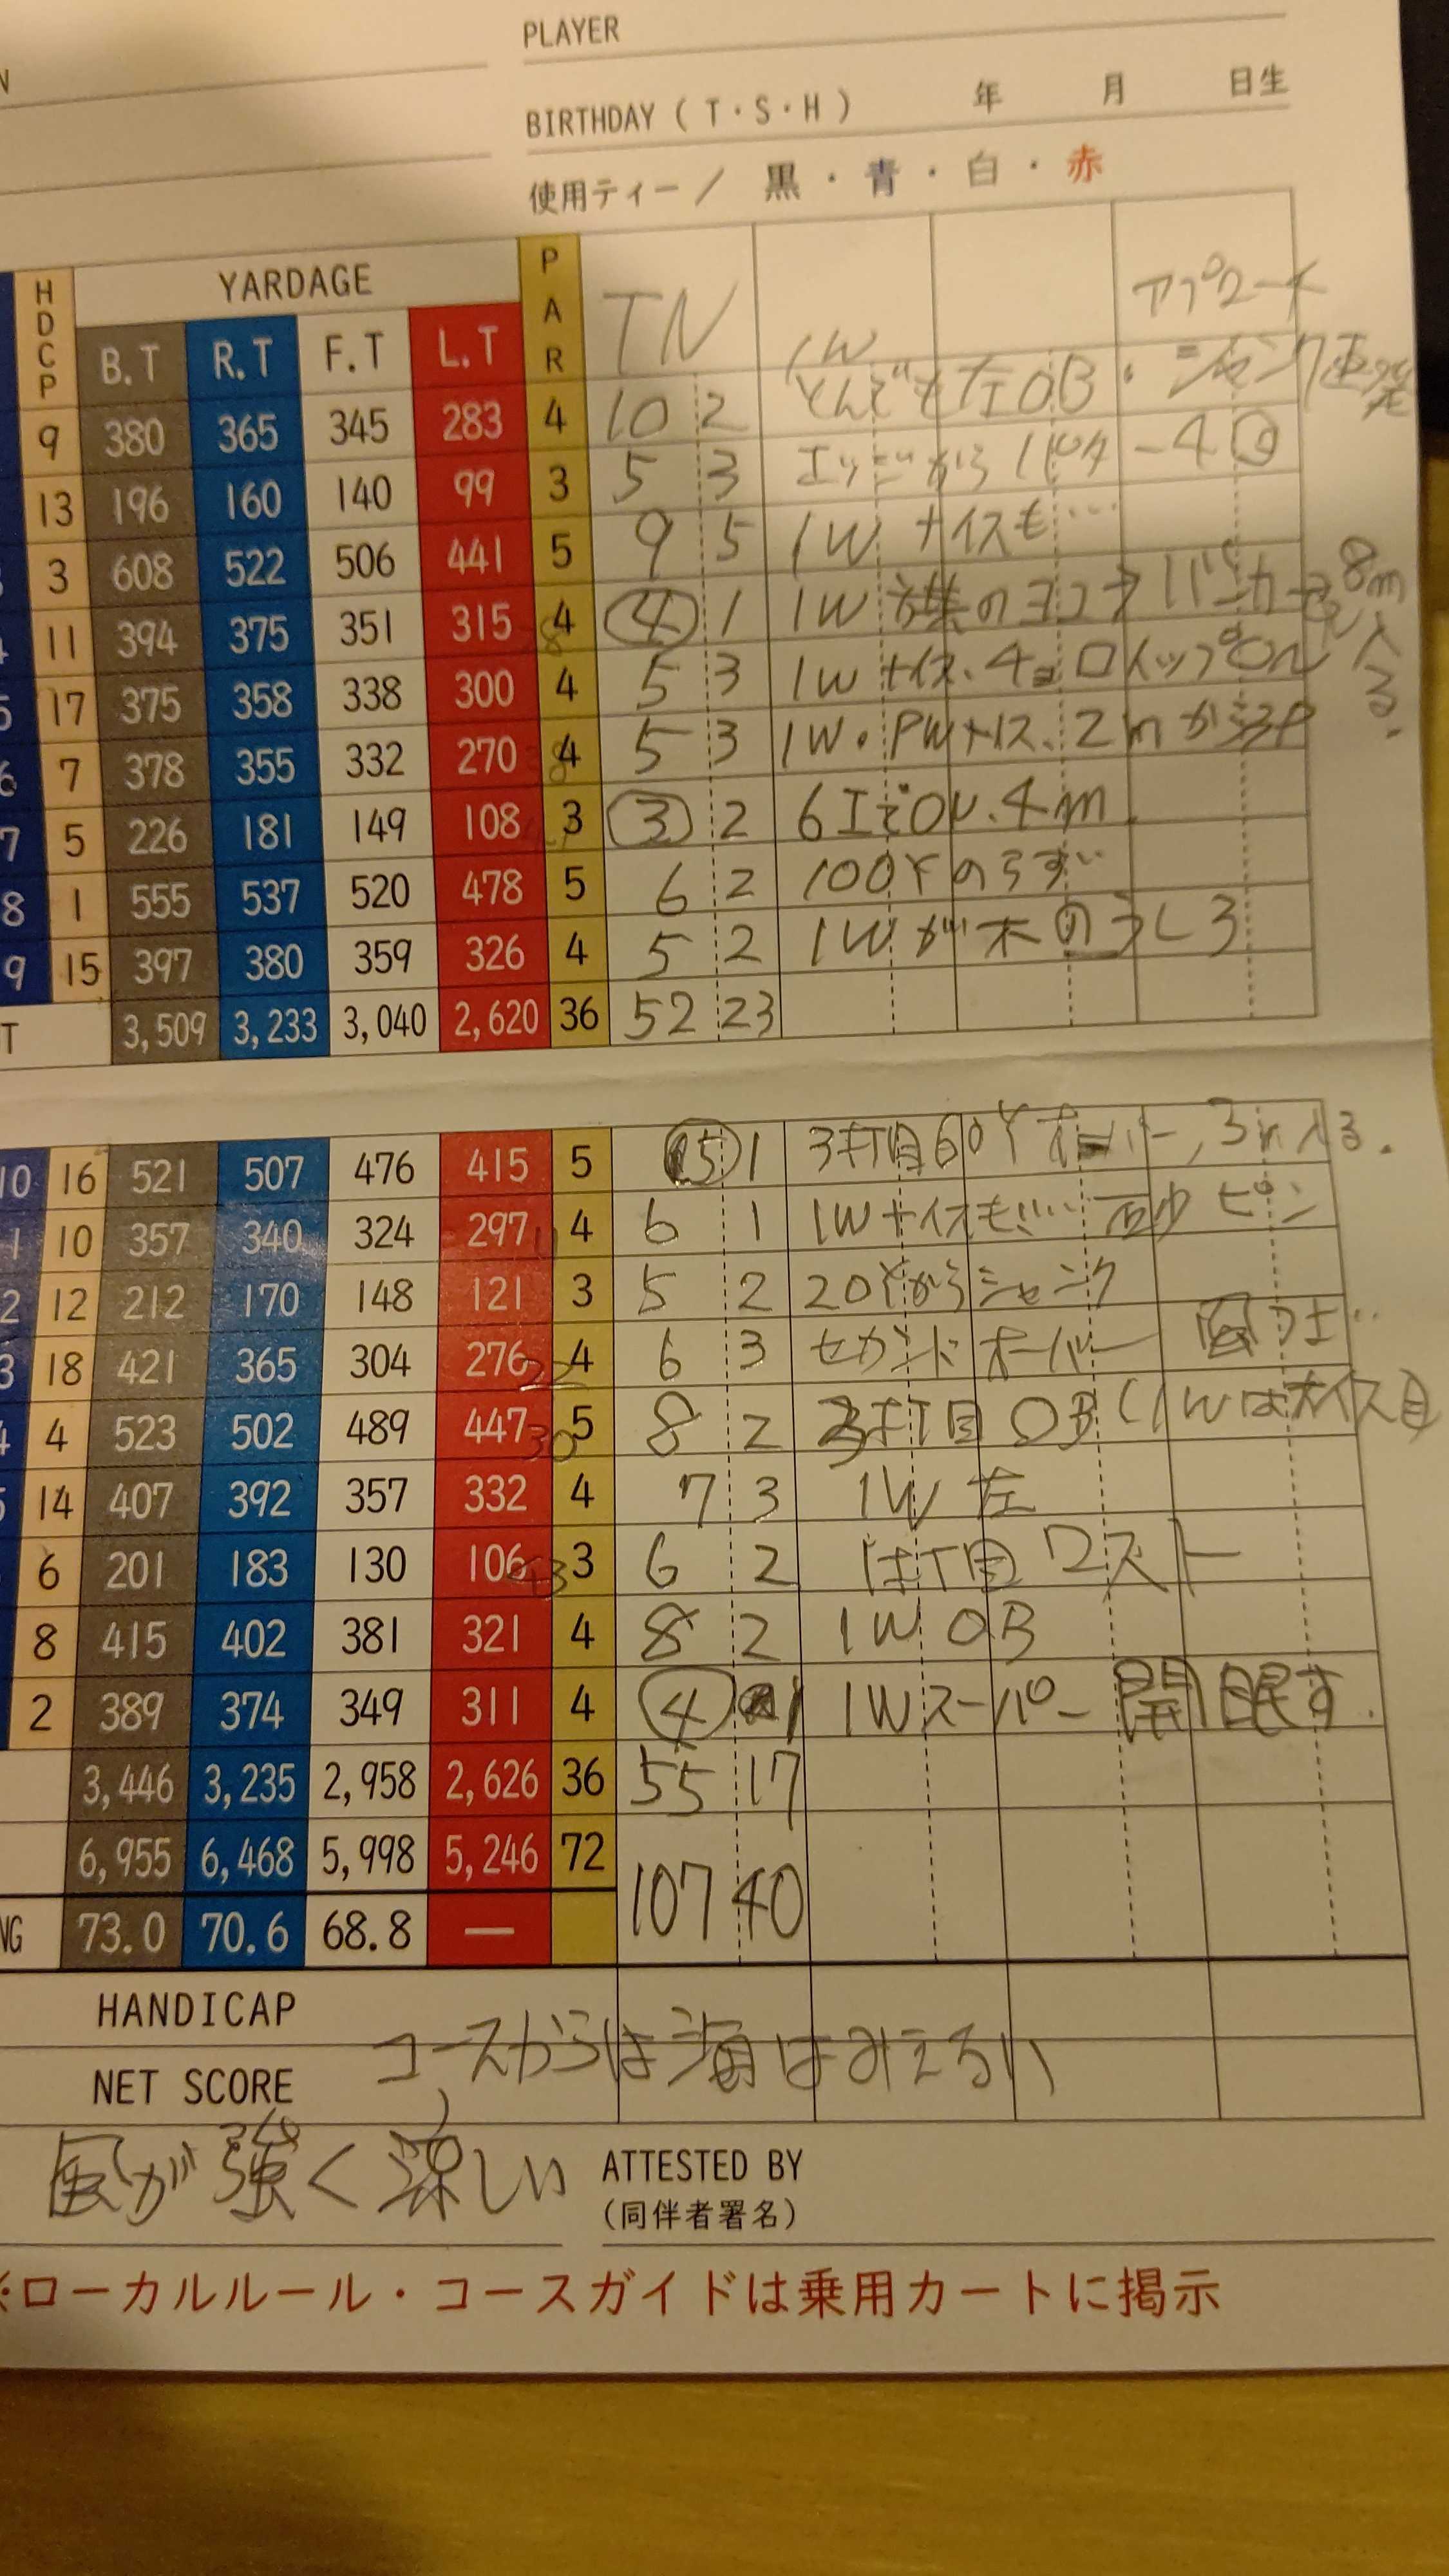 PLAYER
BIRTHDAY ( T・S・H ) 年 月 日生
使用ティー / 黒・青・白・赤
HDCP YARDAGE PAR TN
B.T R.T F.T L.T 1W アプローチ
9 380 365 345 283 4 10 2 とんでも左OB・シャンク連発
13 196 160 140 99 3 5 3 エッジから パター4回
3 608 522 506 441 5 9 5 1W ナイスも…
11 394 375 351 315 4 4 1 1W バンカー 8m入る.
5 17 375 358 338 300 4 5 3 1W ナイス、ON
6 7 378 355 332 270 4 5 3 1W・PWナイス、2mから3P
7 5 226 181 149 108 3 3 2 6IでON.4m
8 1 555 537 520 478 5 6 2 100Yの
9 15 397 380 359 326 4 5 2 1Wが木のうしろ
T 3,509 3,233 3,040 2,620 36 52 23
10 16 521 507 476 415 5 5 1 3打目60Yオーバー,3m入る.
1 10 357 340 324 297 4 6 1 1Wナイスも… ピン
2 12 212 170 148 121 3 5 2 20Yからシャンク
3 18 421 365 304 276 4 6 3 セカンドオーバー 風つよ…
4 4 523 502 489 447 5 8 2 3打目 OB(1Wはナイス
5 14 407 392 357 332 4 7 3 1W 左
6 201 183 130 106 3 6 2 1打目 ロスト
8 415 402 381 321 4 8 2 1W OB
2 389 374 349 311 4 4 1 1Wスーパー 開眼す.
3,446 3,235 2,958 2,626 36 55 17
6,955 6,468 5,998 5,246 72 107 40
NG 73.0 70.6 68.8 —
HANDICAP
コースからは海はみえない
NET SCORE
風が強く涼しい
ATTESTED BY
(同伴者署名)
※ローカルルール・コースガイドは乗用カートに掲示